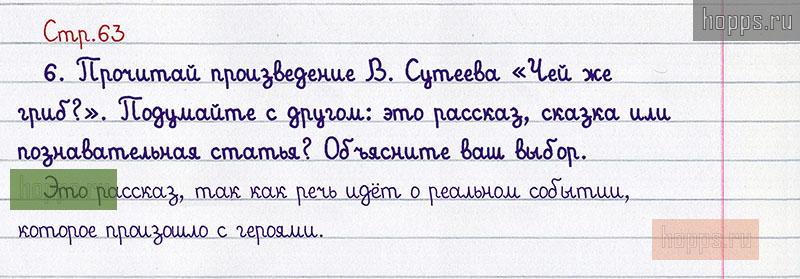 hopps.ru
Стр.63
6. Прочитай произведение В. Сутеева «Чей же
гриб?». Подумайте с другом: это рассказ, сказка или
познавательная статья? Объясните ваш выбор.
Это рассказ, так как речь идёт о реальном событии,
которое произошло с героями.
hopps.ru
hopps.ru